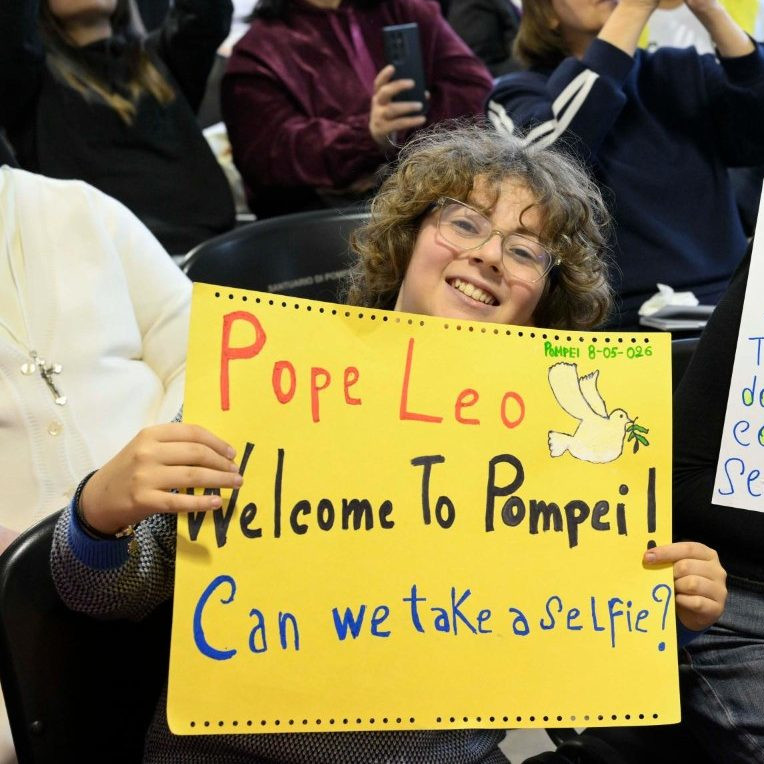 SANTUARIO DI POMPEI
POMPEI 8-05-026
Pope Leo
Welcome To Pompei!
Can we take a selfie?